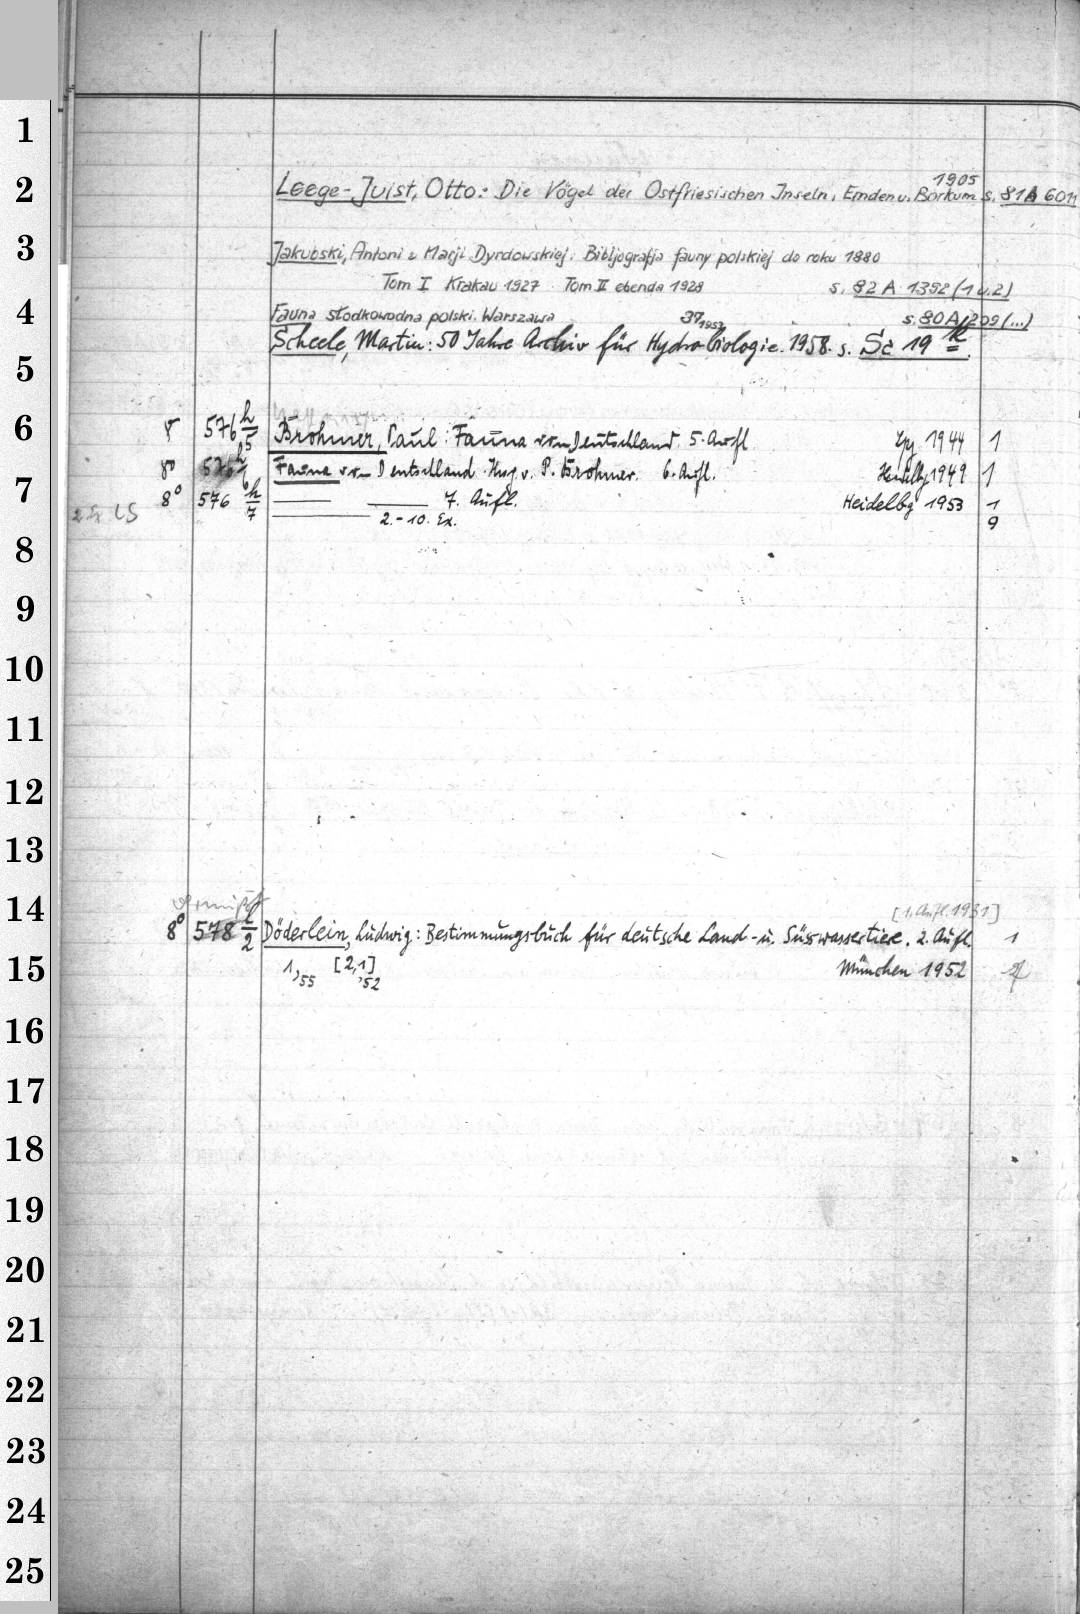 1
2
3
4
5
6
7
8
9
10
11
12
13
14
15
16
17
18
19
20
21
22
23
24
25
1905
Leege-Juist, Otto: Die Vögel der Ostfriesischen Inseln. Emden u. Borkum s. 81A 6011
Jakubski, Antoni u Marji Dyrdowskiej: Bibljografja fauny polskiej do roku 1880
Tom I Krakau 1927 Tom II ebenda 1928 s. 82 A 1392 (1 u. 2)
Fauna słodkowodna polski. Warszawa 37 1953 s. 80 A 209 (...)
Scheele, Martin: 50 Jahre Archiv für Hydrobiologie. 1958. s. Sc 19 k.
8° 576 h/5 Brohmer, Paul: Fauna von Deutschland 5. Aufl. Lpz. 1944 1
8° 576 h/6 Fauna von Deutschland. Hrsg. v. P. Brohmer. 6. Aufl. Heidelbg 1949 1
8° 576 h/7 —— —— 7. Aufl. Heidelbg 1953 1
—— 2.-10. Ex. 9
[1. Aufl. 1931]
8° 578 /2 Döderlein, Ludwig: Bestimmungsbuch für deutsche Land- u. Süsswassertiere. 2. Aufl. 1
1,55 [2,1],52 München 1952